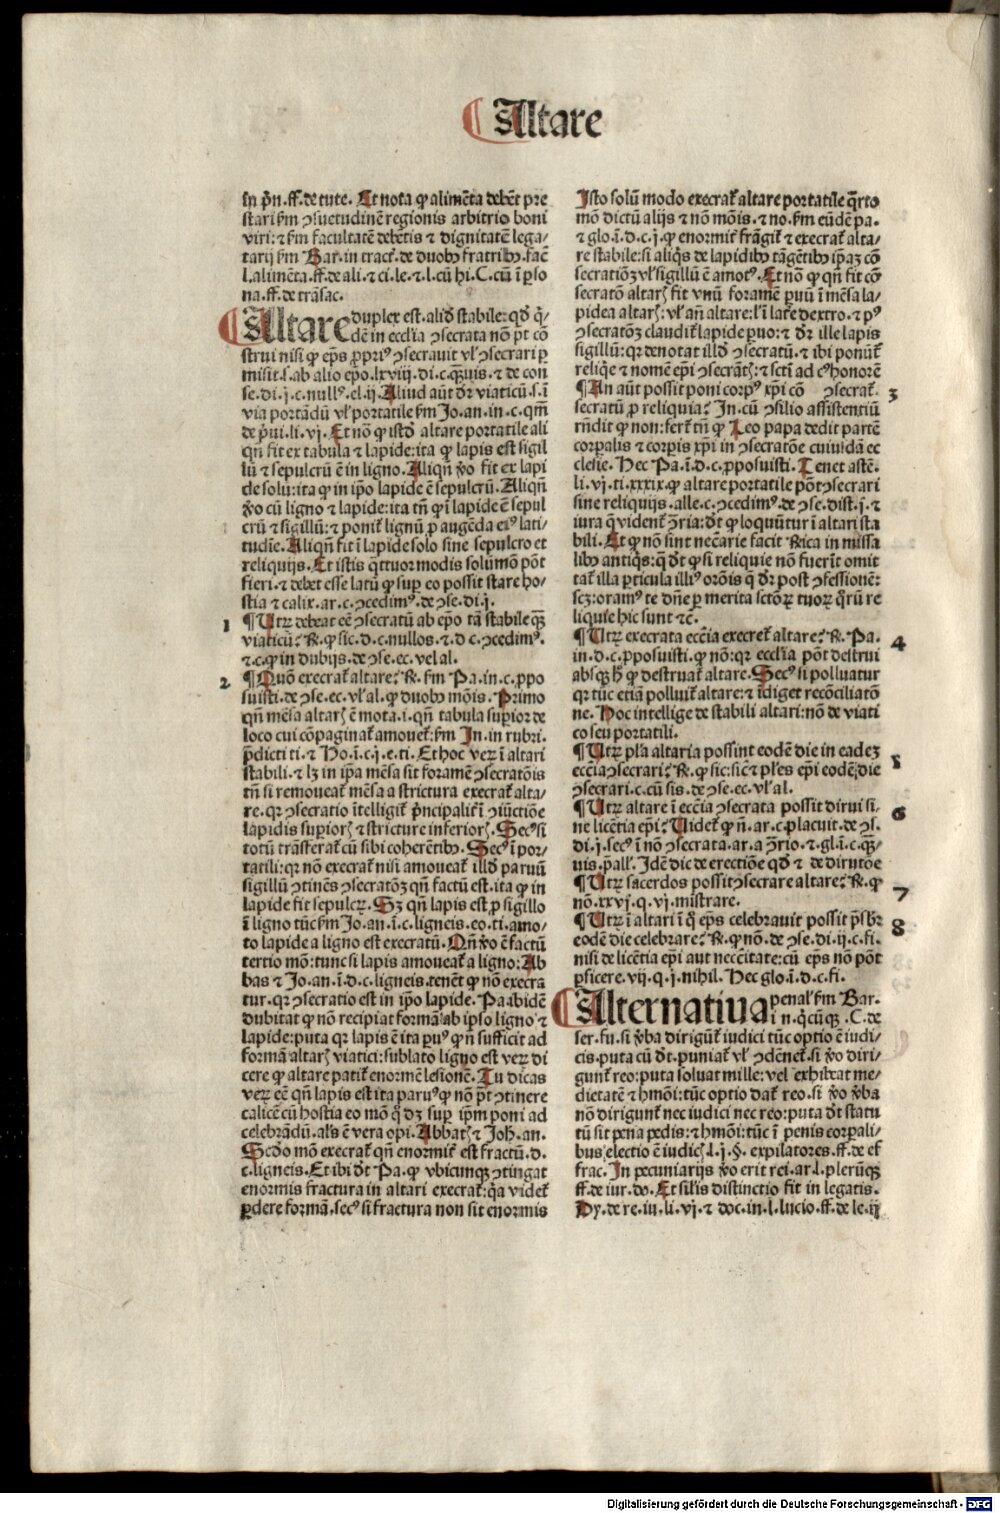 Altare
in pͥn.ff.de tute. Et nota ꝙ alimēta debēt pre
stari ẜm ↄsuetudinē regionis arbitrio boni
viri: ⁊ ẜm facultatē debētis ⁊ dignitatē lega/
tarij ẜm Bar. in tract. de duobꝰ fratribꝰ. facē
l.alimēta.ff.de ali.⁊ ci.le.⁊ l.cū hi.C.cū ī ꝑso
na.ff.de trāsac.
Altare duplex est. aliđ stabile: qđ q̄/
dē in eccl̓ia ↄsecrata nō pōt cō
strui nisi ꝙ ep̄s ꝓpriꝰ ↄsecrauit vl̓ ↄsecrari ꝑ
misit.s.ab alio ep̄o.lxviij.di.c.qͣuis.⁊ de con
se.di.j.c.nullꝰ.el.ij. Aliud aūt đr viaticū.s.ī
via portādū vl̓ portatile ẜm Jo.an.in.c.qm̄
de pͥui.li.vj. Et nō ꝙ istđ altare portatile ali
qn̄ fit ex tabula ⁊ lapide: ita ꝙ lapis est sigil
lū ⁊ sepulcrū ē in ligno. Aliqn̄ ꝟo fit ex lapi
de solū: ita ꝙ in ip̄o lapide ē sepulcrū. Aliqn̄
ꝟo cū ligno ⁊ lapide: ita tn̄ ꝙ ī lapide ē sepul
crū ⁊ sigillū: ⁊ ponit᷑ lignū ꝓ augēda eiꝰ lati/
tudīe. Aliqn̄ fit ī lapide solo sine sepulcro et
reliquijs. Et istis qͣttuor modis solūmō pōt
fieri. ⁊ debet esse latū ꝙ suꝑ eo possit stare ho/
stia ⁊ calix.ar.c.ↄcedimꝰ.de ↄse.di.j.
1 ¶ Utꝝ debeat eē ↄsecratū ab ep̄o tā stabile qͣꝫ
viaticū? ℞.ꝙ sic.d.c.nullos.⁊.d c.ↄcedimꝰ.
⁊.c.ꝙ in dubijs.de ↄse.ec.vel al.
2 ¶ Quō execrat᷑ altare? ℞.ẜm Pa.in.c.ꝓpo
suisti.de ↄse.ec.vl̓ al.ꝙ duobꝰ mōis. Primo
qn̄ mēsa altarꝭ ē mota.i.qn̄ tabula suꝑior de
loco cui cōpaginat᷑ amouet᷑: ẜm Jn.in rubri.
p̄dicti ti.⁊ Ho.ī.c.j.e.ti. Et hoc veꝝ ī altari
stabili.⁊ lꝫ in ip̄a mēsa sit foramē ↄsecratōis
tn̄ si remoueat᷑ mēsa a strictura execrat᷑ alta/
re.qꝛ ↄsecratio ītelligit᷑ pͥncipalit᷑ ī ↄiūctiōe
lapidis suꝑiorꝭ ⁊ stricture inferiorꝭ. Secꝰ si
totū trāsferat᷑ cū sibi coherētibꝰ. Secꝰ ī por/
tatili: qꝛ nō execrat᷑ nisi amoueat᷑ illđ paruū
sigillū ↄtinēs ↄsecratōꝫ qn̄ factū est.ita ꝙ in
lapide fit sepulcꝝ. Sꝫ qn̄ lapis est ꝓ sigillo
ī ligno tūc ẜm Jo.an.ī.c.ligneis.eo.ti.amo/
to lapide a ligno est execratū. Qn̄ ꝟo ē factū
tertio mō: tunc si lapis amoueat᷑ a ligno: Ab
bas ⁊ Jo.an.ī.d.c.ligneis.tenēt ꝙ nō execra
tur.qꝛ ↄsecratio est in ip̄o lapide. Pa ibidē
dubitat ꝙ nō recipiat formā ab ipso ligno ⁊
lapide: puta qꝛ lapis ē ita puꝰ ꝙ n̄ sufficit ad
formā altarꝭ viatici: sublato ligno est veꝝ di
cere ꝙ altare patit᷑ enormē lesionē. Tu dicas
veꝝ eē qn̄ lapis est ita paruꝰ ꝙ nō pōt ↄtinere
calicē cū hostia eo mō ꝙ dꝫ suꝑ ip̄m poni ad
celebrādū.al̓s ē vera opi. Abbatꝭ ⁊ Joh.an.
Scđo mō execrat᷑ qn̄ enormit᷑ est fractū.d.
c.ligneis. Et ibi đt Pa.ꝙ vbicunqꝫ ↄtingat
enormis fractura in altari execrat᷑: qͣa videt᷑
ꝑdere formā.secꝰ si fractura non sit enormis
Jsto solū modo execrat᷑ altare portatile qͣrto
mō dictū alijs ⁊ nō mōis.⁊ no.ẜm eūdē pa.
⁊ glo.ī.d.c.j.ꝙ enormit᷑ frāgit᷑ ⁊ execrat᷑ alta/
re stabile: si aliqͥs de lapidibꝰ tāgētibꝰ ip̄aꝫ cō
secratiōꝫ vl̓ sigillū ē amotꝰ. Et nō ꝙ qn̄ fit cō
secratō altarꝭ fit vnū foramē ꝑuū ī mēsa la/
pidea altarꝭ: vl̓ an̄ altare: l̓ ī lat᷑e dextro.⁊ pꝰ
ↄsecratōꝫ claudit᷑ lapide ꝑuo: ⁊ đr ille lapis
sigillū: qꝛ denotat illđ ↄsecratū.⁊ ibi ponūt᷑
reliqͥe ⁊ nomē ep̄i ↄsecrātꝭ: ⁊ sctī ad cꝰ honorē
¶ An aūt possit poni corpꝰ xp̄i cō ↄsecrat᷑. 3
secratū ꝓ reliquia? Jn.cū ↄsilio assistentiū
rn̄dit ꝙ non: fert᷑ tn̄ ꝙ Leo papa dedit partē
corꝑalis ⁊ corꝑis xp̄i in ↄsecratōe cuiusdā ec
clesie. Hec Pa.ī.d.c.ꝓposuisti. Tenet astē.
li.vj.ti.xxxix.ꝙ altare portatile pōt ↄsecrari
sine reliquijs.alle.c.ↄcedimꝰ.de ↄse.dist.j.⁊
iura q̄ vident᷑ ↄ̄ria: đt ꝙ loquūtur ī altari sta
bili. Et ꝙ nō sint nec̄arie facit ℞ica in missa
libꝰ antiqͥs: q̄ đt ꝙ si reliquie nō fuerīt omit
tat᷑ illa ꝑticula illiꝰ orōis q̄ đr post ↄfessionē:
scꝫ: oramꝰ te dn̄e ꝑ merita sctōꝝ tuoꝝ qͦrū re
liquie hic sunt ⁊c̄.
¶ Utꝝ execrata ecc̄ia execret᷑ altare? ℞.Pa. 4
in.d.c.ꝓposuisti.ꝙ nō: qꝛ eccl̓ia pōt destrui
absqꝫ h̄ ꝙ destruat᷑ altare. Secꝰ si polluatur
qꝛ tūc etiā polluit᷑ altare: ⁊ īdiget recōciliatō
ne. Hoc intellige de stabili altari: nō de viati
co seu portatili.
¶ Utꝝ pl̓a altaria possint eodē die in eadeꝫ 5
ecc̄ia ↄsecrari? ℞.ꝙ sic: sic̄ ⁊ pl̓es ep̄i eodē die
ↄsecrari.c.cū sis.de ↄse.ec.vl̓ al.
¶ Utꝝ altare ī ecc̄ia ↄsecrata possit dirui si/ 6
ne licētia ep̄i? Uidet᷑ ꝙ n̄.ar.c.placuit.de ↄs.
di.j.secꝰ ī nō ↄsecrata.ar.a ↄ̄rio.⁊.gl.ī.c.qͣꝫ/
uis.p̄all. Jdē dic de erectiōe qđ ⁊ de dirutōe
¶ Utꝝ sacerdos possit ↄsecrare altare? ℞.ꝙ 7
nō.xxvj.q.vj.mistrare.
¶ Utꝝ ī altari ī q̄ ep̄s celebrauit possit p̄sbr̄ 8
eodē die celebrare? ℞.ꝙ nō.de ↄse.di.ij.c.fi.
nisi de licētia ep̄i aut necc̄itate: cū ep̄s nō pōt
ꝑsicere.vij.q.j.nihil. Hec glo.ī.d.c.fi.
Alternatiua penal̓ ẜm Bar.
i n.qͥcūqꝫ.C.de
ser.fu.si ꝟba dirigūt᷑ iudici tūc optio ē iudi/
cis.puta cū đt.puniat᷑ vl̓ ↄdēnet᷑.si ꝟo diri/
gunt᷑ reo: puta soluat mille: vel exhibeat me/
dietatē ⁊ hmōi: tūc optio dat᷑ reo.si ꝟo ꝟba
nō dirigunt᷑ nec iudici nec reo: puta đt statu
tū sit pena pedis: ⁊ hmōi: tūc ī penis corꝑali/
bus electio ē iudicꝭ.l.j.§.expilatores.ff.de ef
frac. Jn pecuniarijs ꝟo erit rei.ar.l.plerūqꝫ
ff.de iur.do. Et sil̓is distinctio fit in legatis.
Dy.de re.iu.li.vj.⁊ doc.in.l.lucio.ff.de le.ij
Digitalisierung gefördert durch die Deutsche Forschungsgemeinschaft - DFG